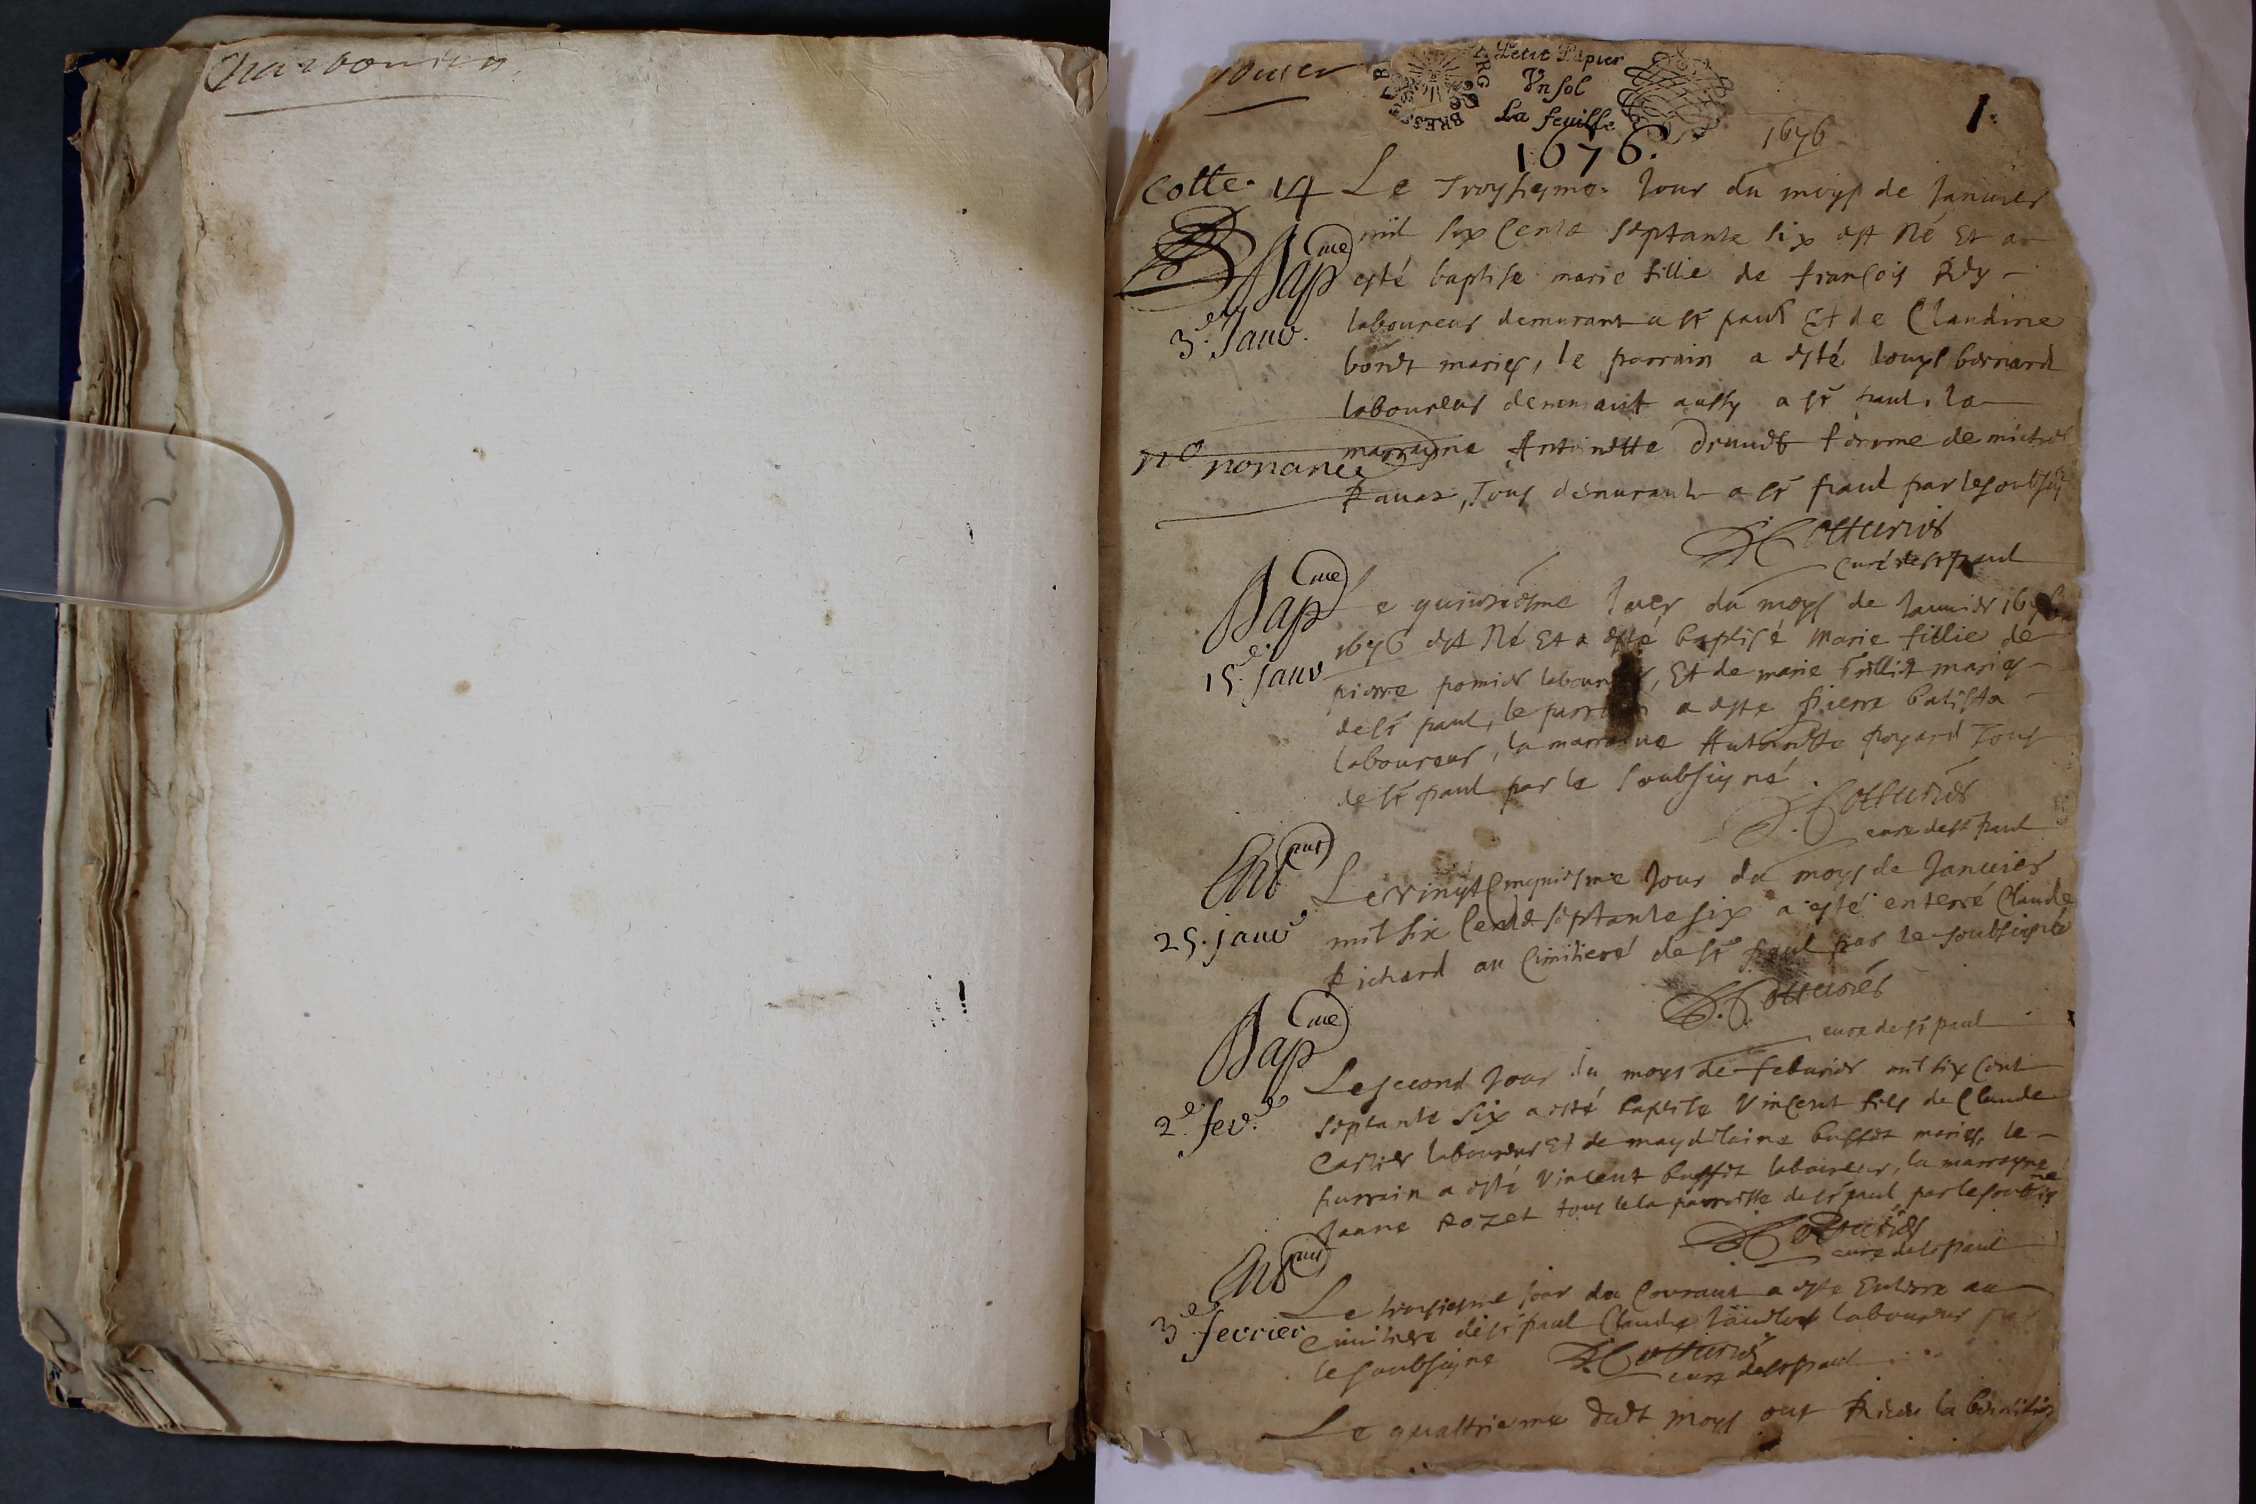 Petit Papier
Vn sol
La feuille
1676
1.
1676.
Cotte. 14
Le Troysiesme Jour du moys de Januier
mil six Cents septante six est Né Et a
esté baptise marie fillie de françois Rey
laboureur demurant a st paul Et de Claudine
mariés, le parrain a esté Louys bernard
laboureur demurant aussy a st paul, la
marrayne Antoinette femme de
Tous demurant a st paul par le soubsig
Bapme
3e Janv.
no nonante
Cotturier
curé de st paul
Bapme
15e janv
e quinsiesme Jour du moys de Januier
1676 est Né Et a esté baptisé Marie fillie de
pierre pomier laboureur, Et de marie mariés
de st paul, le parrain a este pierre batista
laboureur, la marrayne Anthoinette poyard Tous
de st paul par le soubsigné.
Cotturier
cure de st paul
Entmt
25. janve
Le vingt Cinquiesme Jour du moys de Januier
mil six Cents septante six a esté enterré Claude
Richard au Cimitieré de st paul par le soubsigné
Cotturier
cure de st paul
Bapme
2e fev.
Le second Jour du moys de feburier mil six Cent
septante six a esté baptise Vincent fils de Claude
Carrier laboureur Et de maydelaine buffet mariés, le
parrain a esté Vincent buffet laboureur, la marrayne
Janne Rozet tous de la parroisse de st paul par le soubsigné
Cotturier
cure de st paul
Entmt
3e fevrier
Le troysiesme jour du Courant a esté Enterre au
Cimitiere de st paul Claude laboureur par
le soubsigne
Cotturier
cure de st paul
Le quattrieme dudt moys ont